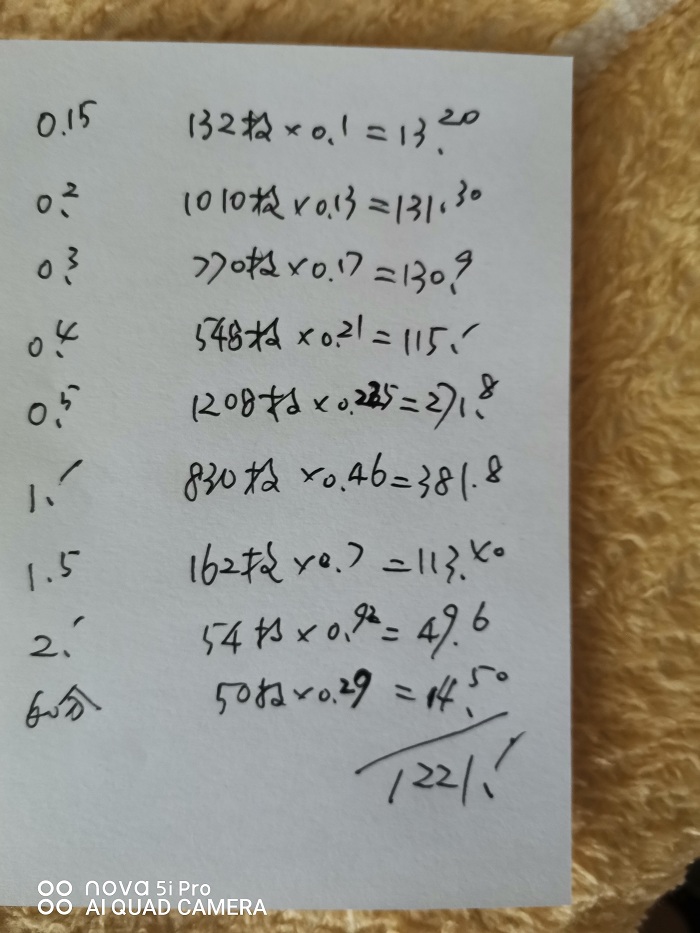 0.15 132枚×0.1=13.20
0.2 1010枚×0.13=131.30
0.3 770枚×0.17=130.9
0.4 548枚×0.21=115.-
0.5 1208枚×0.225=271.8
1.- 830枚×0.46=381.8
1.5 162枚×0.7=113.40
2.- 54枚×0.92=49.6
60分 50枚×0.29=14.50
1221.-
nova 5i Pro
AI QUAD CAMERA